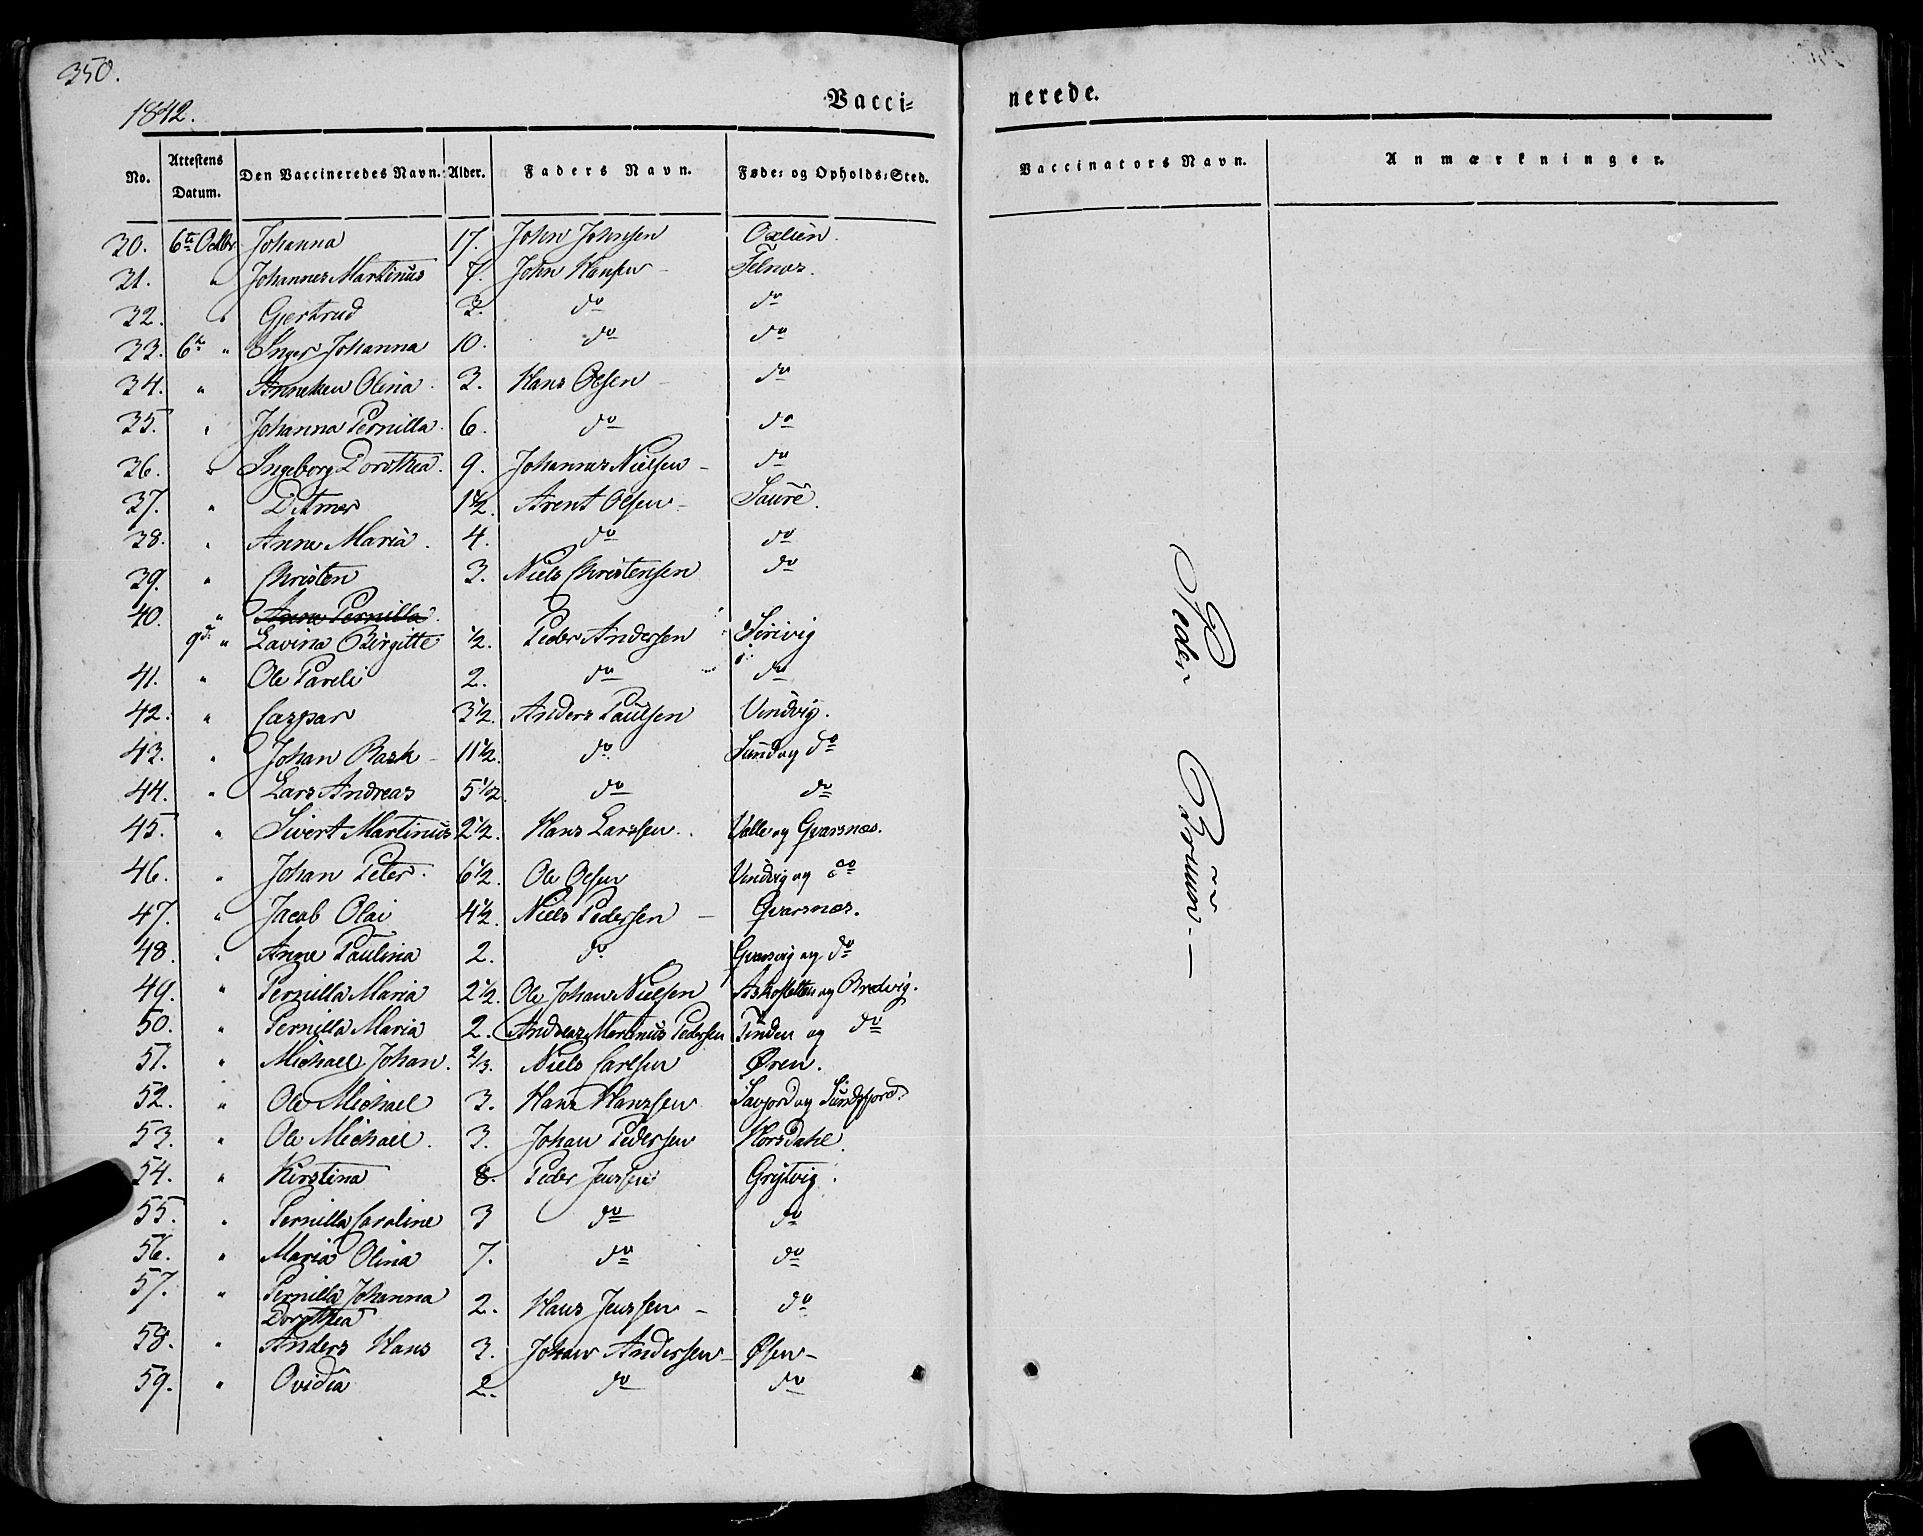 350.
1842.
Vacci= nerede.
No. Attestens Datum. Den Vaccineredes Navn. Alder. Faders Navn. Føde= og Opholds=Sted. Vaccinators Navn. Anmærkninger.
30. 6te Octbr Johanna 17. John Johnsen Oxlien.
31. " Johannes Martinus 7. John Hansen - Felnes.
32. " Gjertrud 3. do do
33. 6te " Inger Johanna 10. do do
34. " Anneken Olina. 3. Hans Olsen - do
35. " Johanna Pernilla. 6. do do
36. " Ingeborg Dorothea. 9. Johannes Nielsen - do
37. " Ditmer 1 1/2. Arent Olsen - Saure.
38. " Anne Maria. 4. do do
39. " Christen 3. Niels Christensen do
40. " Anne Pernilla.
9d: " Lavina Birgitte 1/2. Peder Andersen Sørivig
41. " Ole Pareli 2. do do
42. " Caspar 3 1/2. Anders Paulsen Vindvig.
43. " Johan Rask - 11 1/2. do. Sund og do
44. " Lars Andreas 5 1/2. do do
45. " Sivert Martinus 2 1/2. Hans Larssen. Valle og Gvarsnæs.
46. " Johan Peter. 6 1/2. Ole Olsen Vindvig og do
47. " Jacob Olai 4 1/2. Niels Pedersen - Gvarsnæs.
48. " Anne Paulina 2. do Gvarvig og do
49. " Pernilla Maria 2 1/2. Ole Johan Nielsen Askofletten og Bredvig.
50. " Pernilla Maria 2. Andreas Martinus Pedersen Tinden og do
51. " Michael Johan. 2/3. Niels Carlsen Øren.
52. " Ole Michael 3. Hans Hanssen Savjord og Sundsfjord.
53. " Ole Michael. 3. Johan Pedersen Horsdahl.
54. " Kirstina 8. Peder Jenssen Grytvig.
55. " Pernilla Caroline 3 do do
56. " Maria Olina 7. do do
57. " Pernilla Johanna Dorothea 2. Hans Jenssen - do
58. " Anders Hans 3. Johan Andersen - Øsen -
59. " Ovidia 2. do do
Peder Brüün. -